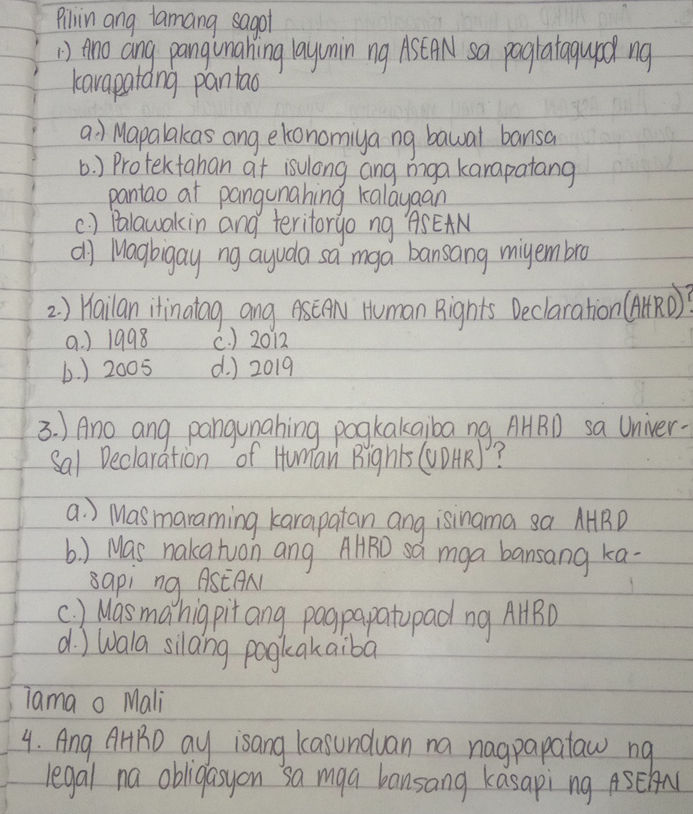 Piliin ang tamang sagot
1.) Ano ang pangunahing layunin ng ASEAN sa pagtataguyod ng
karapatang pantao
a.) Mapalakas ang ekonomiya ng bawat bansa
b.) Protektahan at isulong ang mga karapatang
pantao at pangunahing kalayaan
c.) Palawakin ang teritoryo ng ASEAN
d.) Magbigay ng ayuda sa mga bansang miyembro
2.) Kailan itinatag ang ASEAN Human Rights Declaration (AHRD)?
a.) 1998 c.) 2012
b.) 2005 d.) 2019
3.) Ano ang pangunahing pagkakaiba ng AHRD sa Univer-
sal Declaration of Human Rights (UDHR)?
a.) Mas maraming karapatan ang isinama sa AHRD
b.) Mas nakatuon ang AHRD sa mga bansang ka-
sapi ng ASEAN
c.) Mas mahigpit ang pagpapatupad ng AHRD
d.) Wala silang pagkakaiba
Tama o Mali
4. Ang AHRD ay isang kasunduan na nagpapataw ng
legal na obligasyon sa mga bansang kasapi ng ASEAN